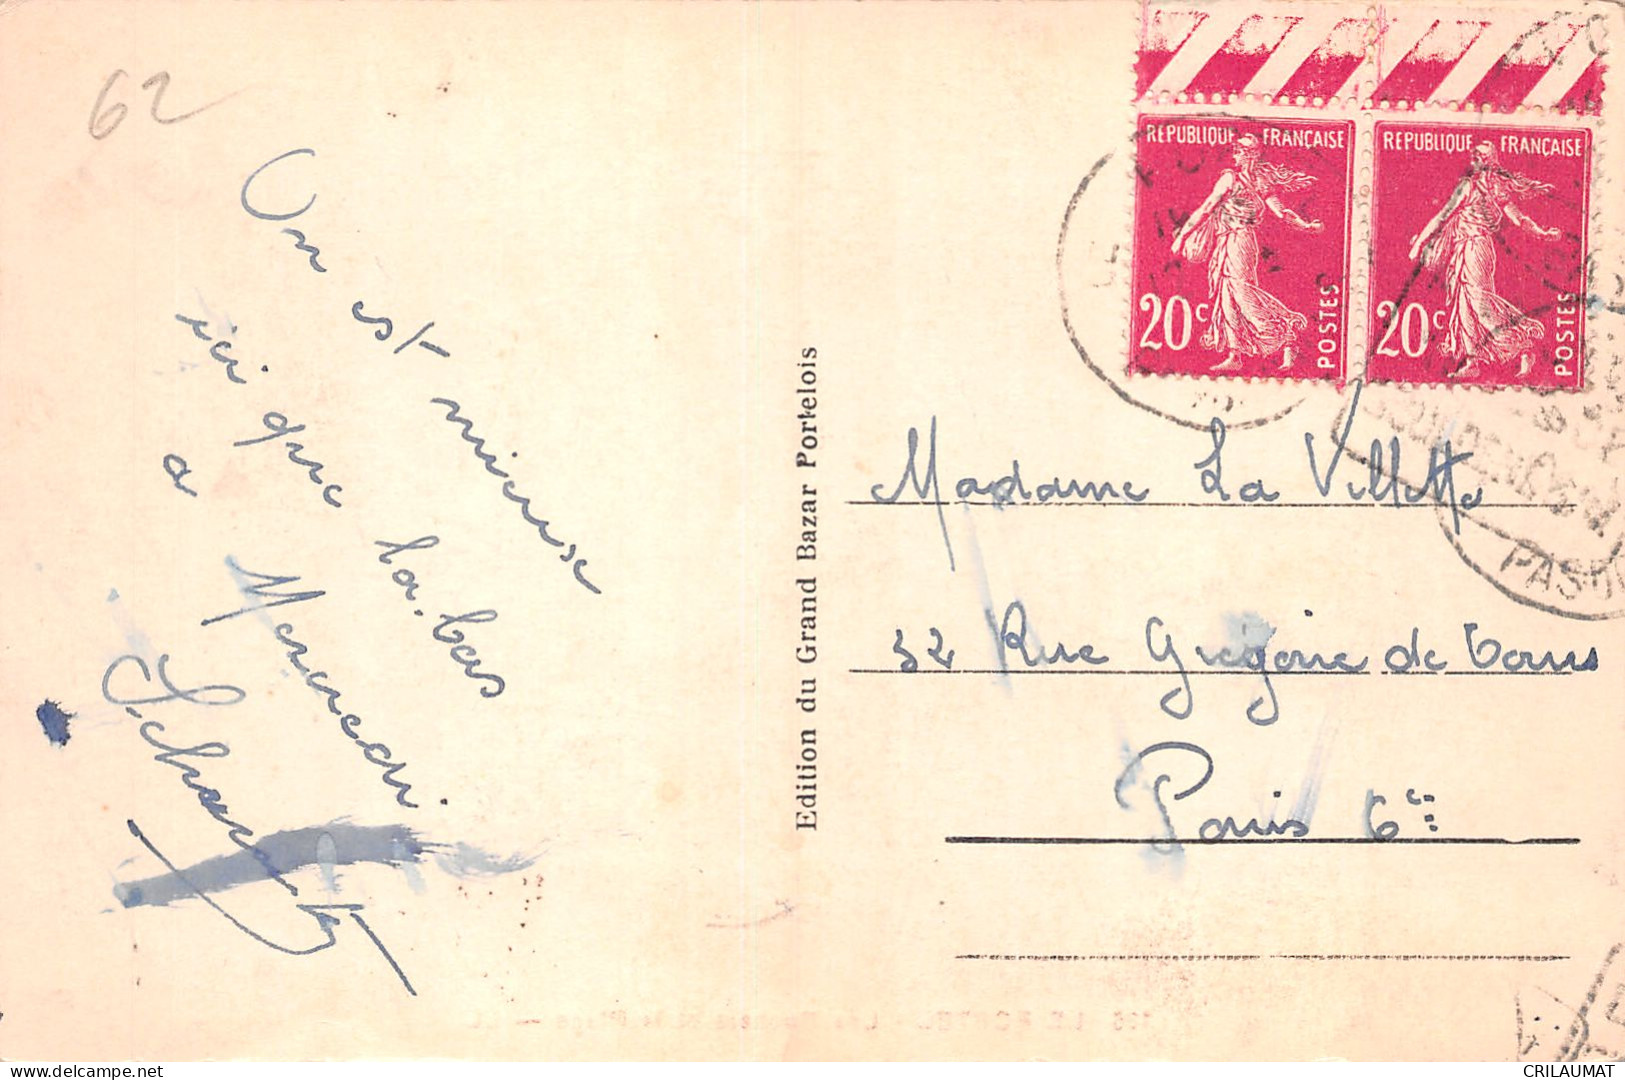 62
On est mieux
ici que la-bas
a Mercredi
Edition du Grand Bazar Portelois
REPUBLIQUE FRANÇAISE
20c
POSTES
REPUBLIQUE FRANÇAISE
20c
POSTES
PAS
Madame La Villette
32 Rue Grégoire de Tours
Paris 6e
CRILAUMAT